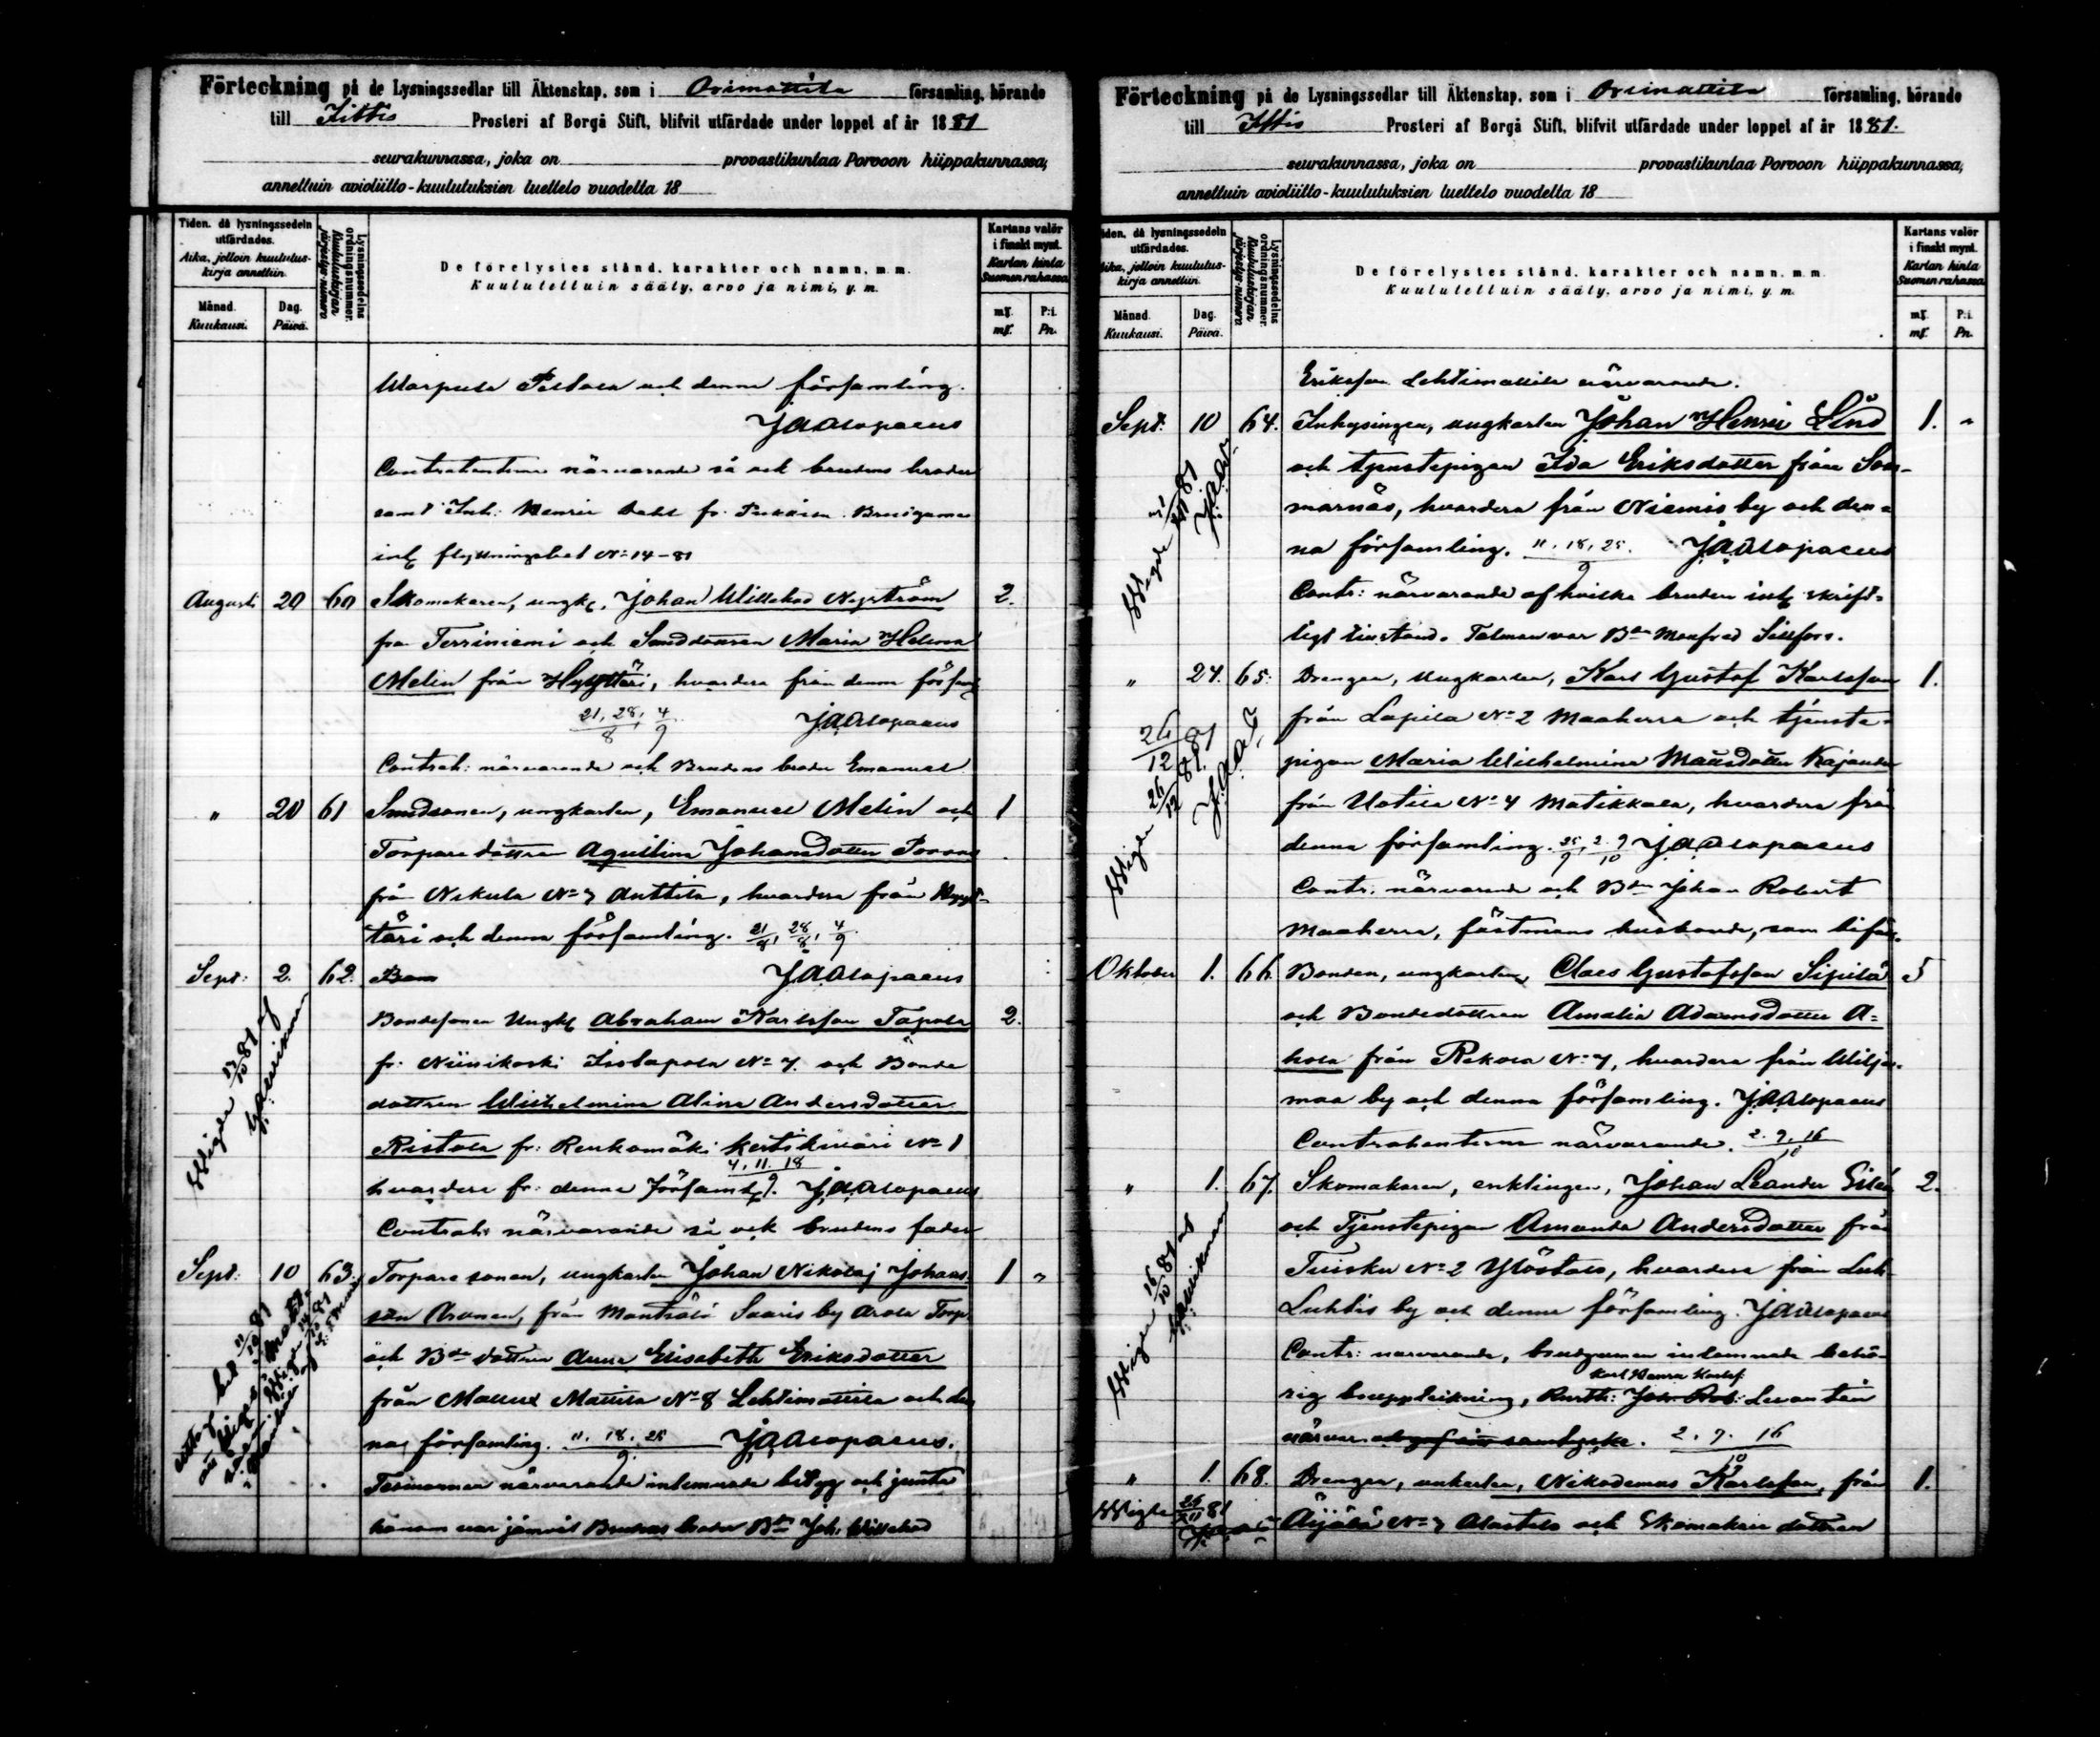 Förteckning på de Lysningssedlar till Äktenskap, som i Orimattila församling, hörande
till Iittis Prosteri af Borgå Stift, blifvit utfärdade under loppet af år 1881
seurakunnassa, joka on provastikuntaa Porvoon hiippakunnassa,
annettuin avioliitto-kuulutuksien luettelo vuodelta 18
Tiden, då lysningssedeln utfärdades.
Aika, jolloin kuulutus-kirja annettiin.
Månad. Kuukausi.
Dag. Päivä.
Lysningssedelns ordningsnummer.
Kuulutuskirjan järjestys-numero
De förelystes stånd, karakter och namn, m. m.
Kuulutettuin sääty, arvo ja nimi, y. m.
Kartans valör i finskt mynt.
Kartan hinta Suomen rahassa
mf. P:i.
mf. Pn.
och denna församling.
J A Alopaeus
Contrahenterne närvarande så ock brudens broder
samt Inh: Henric fr.
inl flyttningsbet No 14-81
Augusti 20 60 Skomakaren, ungk. Johan Willehad Nyström 2.
fr. Terriniemi och Smeddottren Maria Helena
Melin från Hyyttäri, hvardera från denna förs
21, 28, 4 J A Alopaeus
8 9
Contrah: närvarande och Brudens broder Emanuel
" 20 61 Smedsonen, ungkarlen, Emanuel Melin och 1
Torpare dottren Aquilina Johansdotter
från Nikula No 7 Anttila, hvardera från Hyyt-
täri och denna församling. 21/8, 28/8, 4/9
Sept: 2. 62. J A Alopaeus
Bondesonen Ungk Abraham Karlsson Tapola 2.
fr. Niinikoski Isotapola No 7. och Bonde
dottren Wilhelmina Alina Andersdotter
Ristola fr: Renkomäki No 1
4, 11. 18
9
hvardera fr. denna församl. J A Alopaeus
Contrah: närvarande så ock brudens fader
Sept: 10 63. Torpare sonen, ungkarlen Johan Nikolaj Johans- 1 "
son från Mäntsälä Saaris by Arola Torp
och Bde dottren Anna Elisabeth Eriksdotter
från Mattila No 8 Lehtimattila och den-
na församling. 11. 18. 25 J A Alopaeus.
9
närvarande inlemnade betyg och jemte
honom var jämväl Brudens broder Bdn Joh: Willehad
Förteckning på de Lysningssedlar till Äktenskap, som i Orimattila församling, hörande
till Iittis Prosteri af Borgå Stift, blifvit utfärdade under loppet af år 1881.
seurakunnassa, joka on provastikuntaa Porvoon hiippakunnassa,
annettuin avioliitto-kuulutuksien luettelo vuodelta 18
Tiden, då lysningssedeln utfärdades.
Aika, jolloin kuulutus-kirja annettiin.
Månad. Kuukausi.
Dag. Päivä.
Lysningssedelns ordningsnummer.
Kuulutuskirjan järjestys-numero
De förelystes stånd, karakter och namn, m. m.
Kuulutettuin sääty, arvo ja nimi, y. m.
Kartans valör i finskt mynt.
Kartan hinta Suomen rahassa
mf. P:i.
mf. Pn.
Eriksson Lehtimattila närvarande.
Sept. 10 64. Inhysingen, ungkarlen Johan Henric Lind 1. "
och tjenstepigan Ida Eriksdotter från Som-
marnäs, hvardera från Niemis by och den-
na församling. 11. 18, 25. J A Alopaeus
9
Contr: närvarande af hvilka bruden inl skrift-
ligt tillstånd. Talman var Bdn Manfred Sillfors.
" 24. 65. Drengen, Ungkarlen, Karl Gustof Karlsson 1.
från Lapila No 2 Maaherra och tjenste-
pigan Maria Wilhelmina Mattsdotter Kajander
från Uotila No 4 Matikkala, hvardera från
denna församling. 25/9, 2. 9/10 J A Alopaeus
Contr: närvarande och Bdn Johan Robert
Maaherra, fästmans husbonde, som biföll.
Oktober 1. 66. Bonden, ungkarlen, Claes Gustafsson Sipilä 5
och Bondedottren Amalia Adamsdotter A-
hola från Rekola No 7, hvardera från Wilja-
maa by och denna församling. J A Alopaeus
Contrahenterne närvarande. 2. 9. 16
10
" 1. 67. Skomakaren, enklingen, Johan Leander Silén 2.
och Tjenstepigan Amanda Andersdotter från
Tuisku No 2 Ylöstalo, hvardera från
Luhtis by och denna församling. J A Alopaeus
Contr: närvarande, brudgummen inlemnade behö-
rig bouppteckning, Levantin
närvar. 2. 9. 16
10
" 1. 68. Drengen, unkarlen, Nikodemus Karlsson, från 1.
Wigde 26/11 81 Äijälä No 7 Alastalo och Skomakare dottren